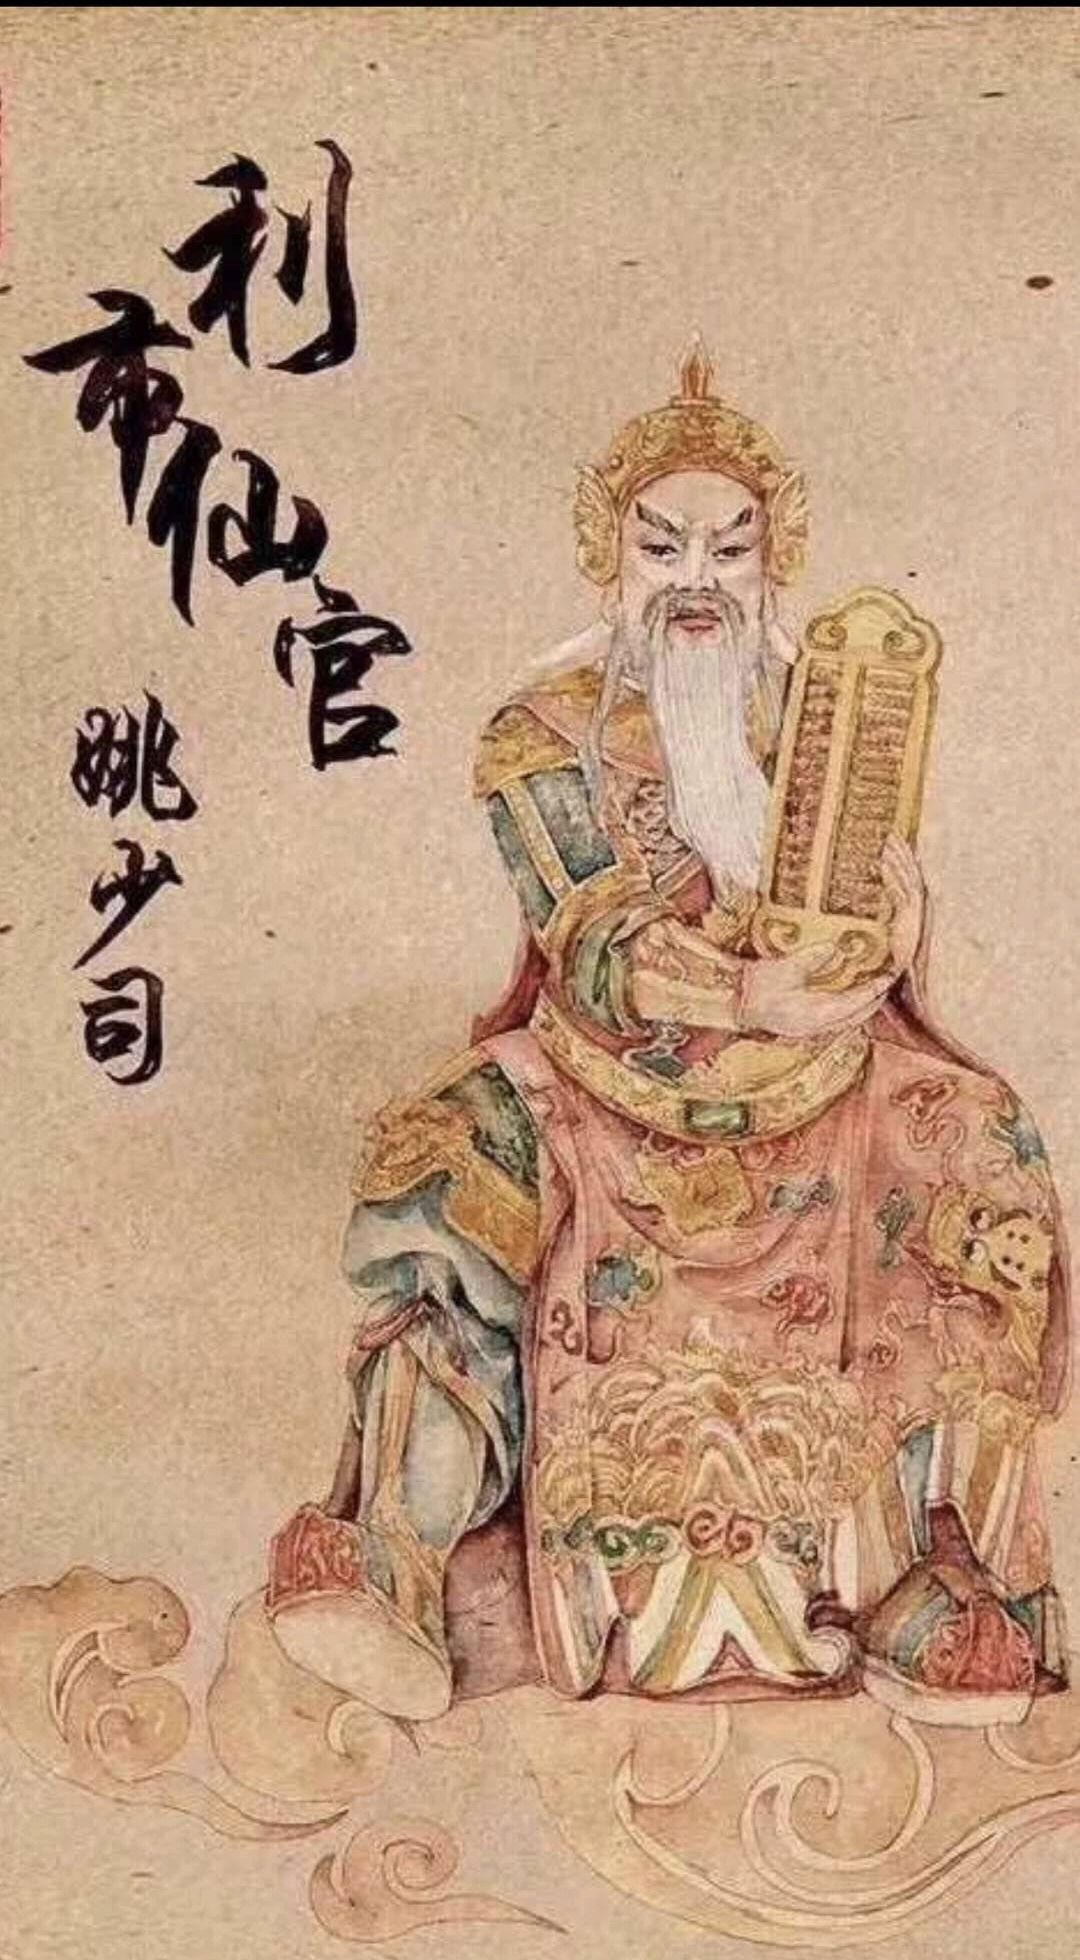 利市仙官
姚少司